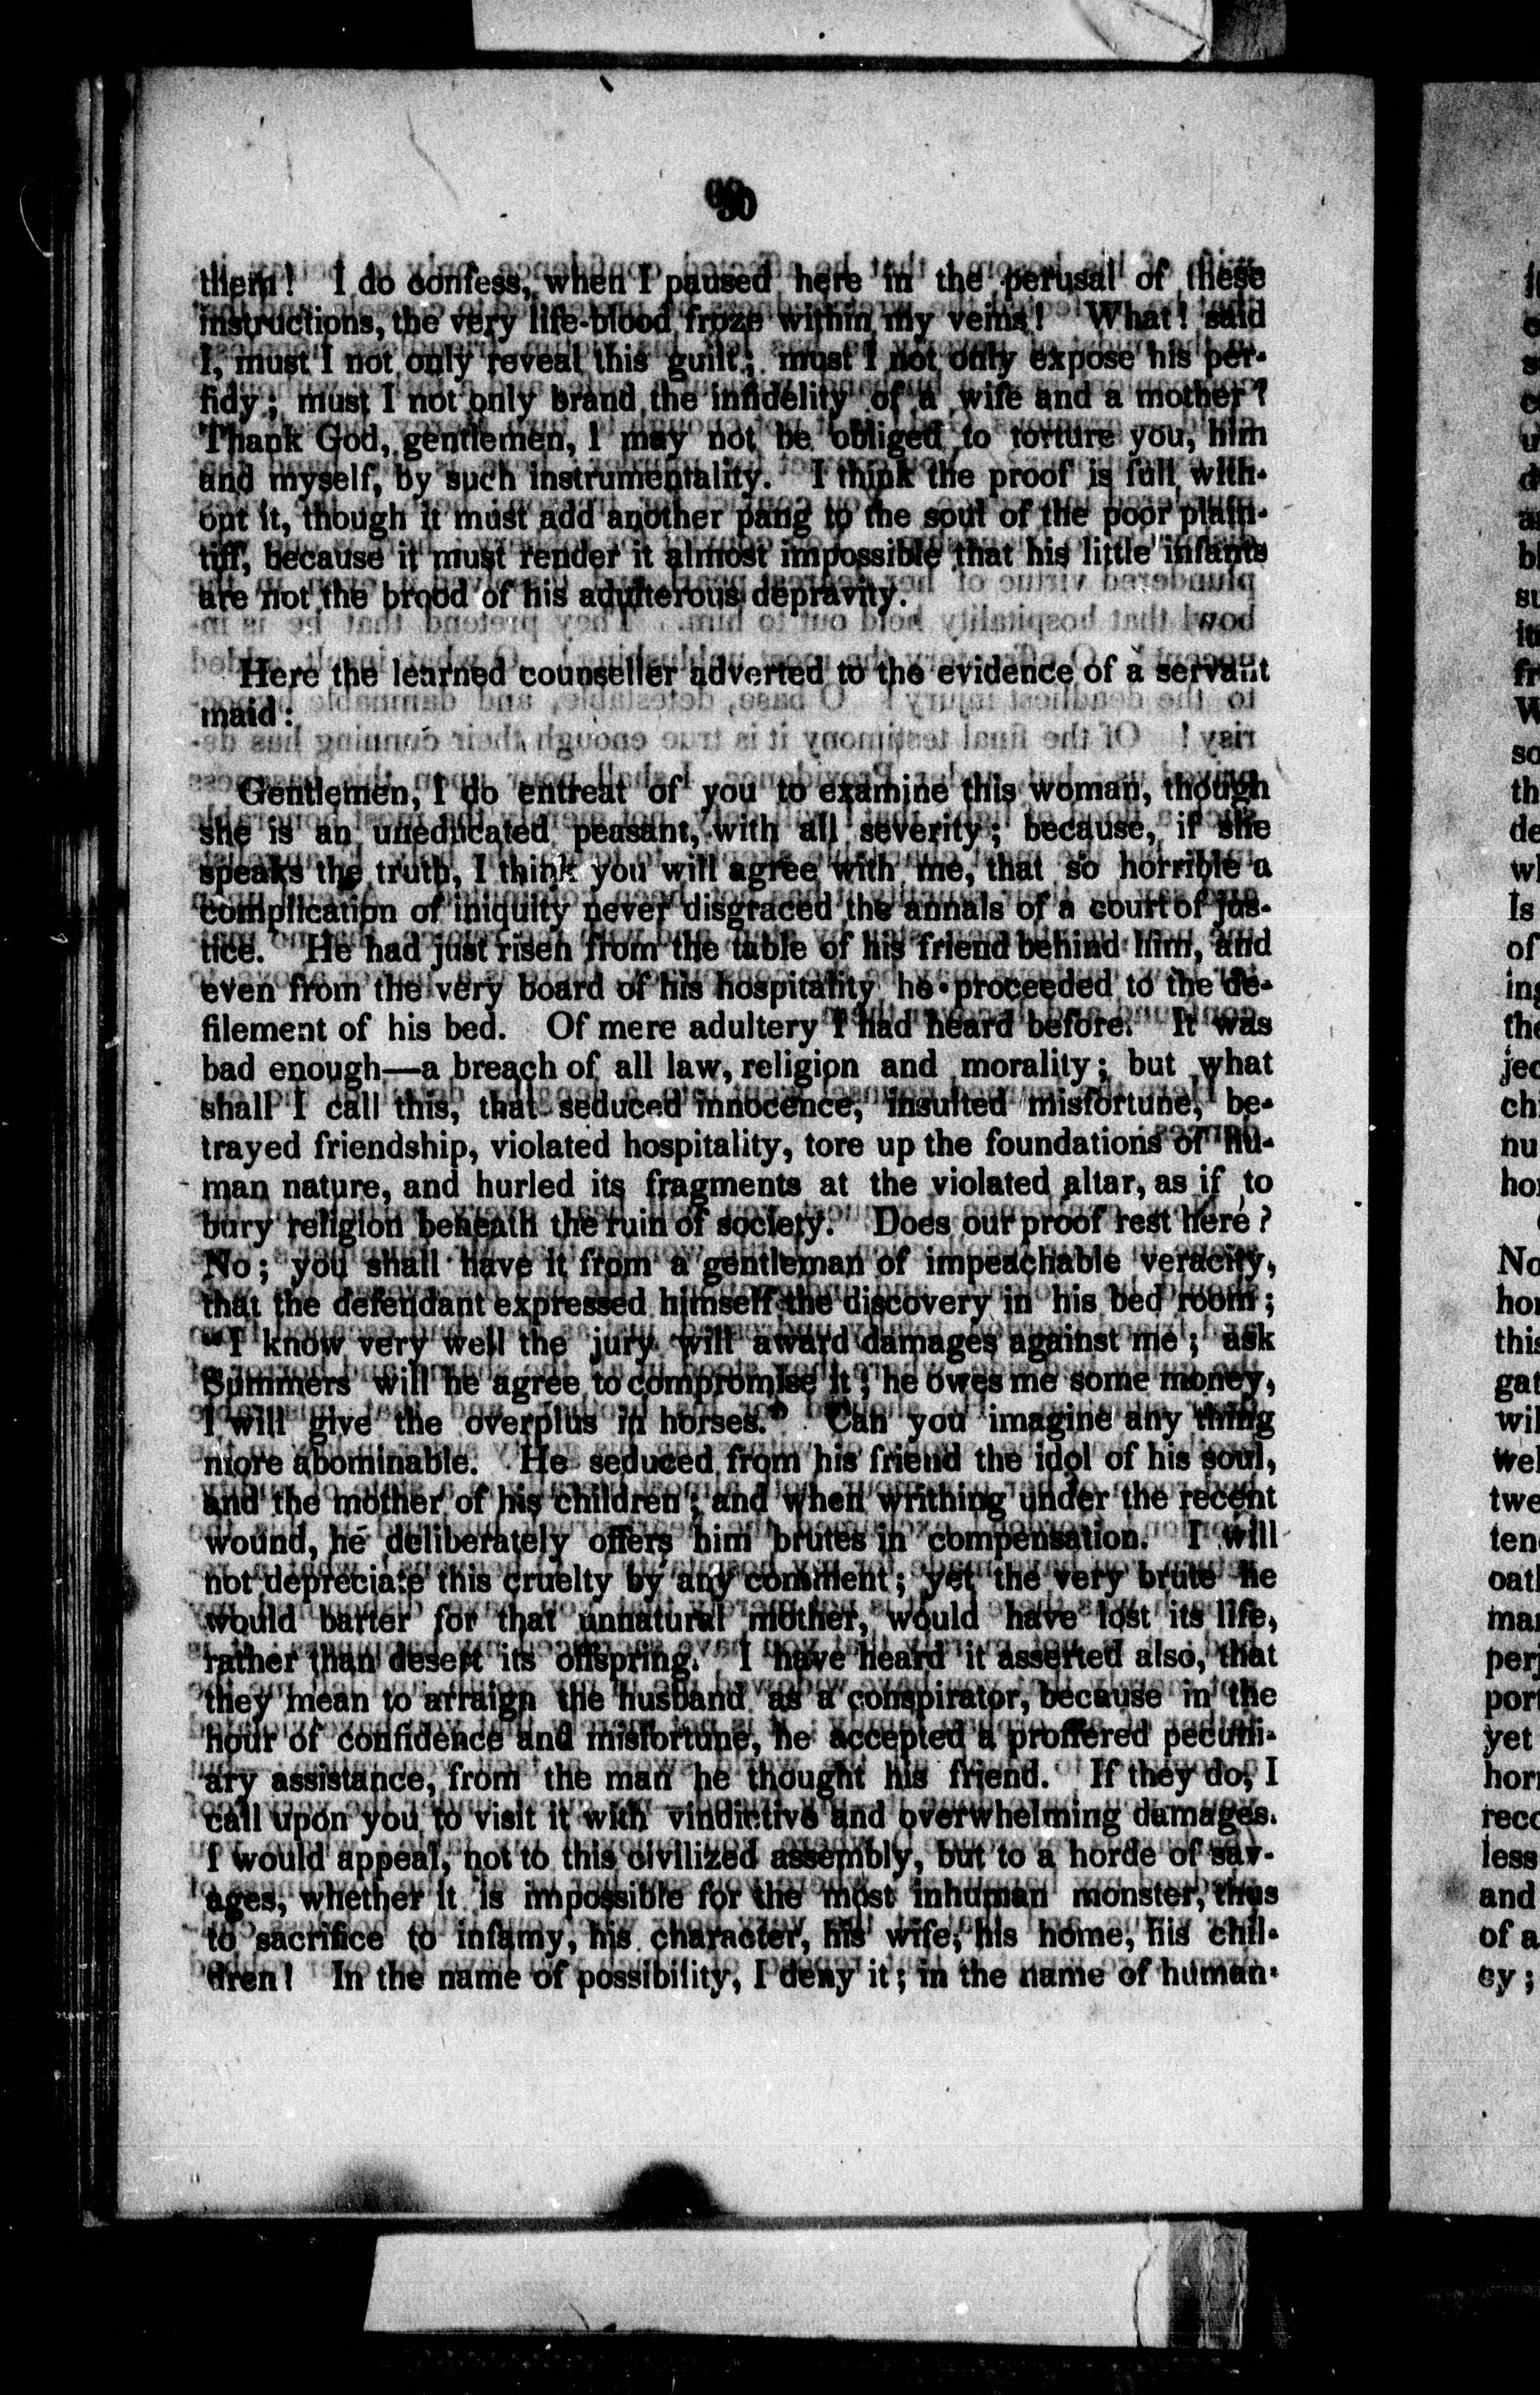 them! I do confess, when I paused here in the perusal of these
instructions, the very life-blood froze within my veins! What! said
I, must I not only reveal this guilt; must I not only expose his per-
fidy; must I not only brand the infidelity of a wife and a mother?
Thank God, gentlemen, I may not be obliged to torture you, him
and myself, by such instrumentality. I think the proof is full with-
out it, though it must add another pang to the soul of the poor plain-
tiff, because it must render it almost impossible that his little infants
are not the brood of his adulterous depravity.
Here the learned counseller adverted to the evidence of a servant
maid:
Gentlemen, I do entreat of you to examine this woman, though
she is an uneducated peasant, with all severity; because, if she
speaks the truth, I think you will agree with me, that so horrible a
complication of iniquity never disgraced the annals of a court of jus-
tice. He had just risen from the table of his friend behind him, and
even from the very board of his hospitality he proceeded to the de-
filement of his bed. Of mere adultery I had heard before. It was
bad enough—a breach of all law, religion and morality; but what
shall I call this, that seduced innocence, insulted misfortune, be-
trayed friendship, violated hospitality, tore up the foundations of hu-
man nature, and hurled its fragments at the violated altar, as if to
bury religion beneath the ruin of society. Does our proof rest here?
No; you shall have it from a gentleman of impeachable veracity,
that the defendant expressed himself the discovery in his bed room;
"I know very well the jury will award damages against me; ask
Summers will he agree to compromise it; he owes me some money,
I will give the overplus in horses." Can you imagine any thing
more abominable. He seduced from his friend the idol of his soul,
and the mother of his children; and when writhing under the recent
wound, he deliberately offers him brutes in compensation. I will
not depreciate this cruelty by any comment; yet the very brute he
would barter for that unnatural mother, would have lost its life,
rather than desert its offspring. I have heard it asserted also, that
they mean to arraign the husband as a conspirator, because in the
hour of confidence and misfortune, he accepted a proffered pecuni-
ary assistance, from the man he thought his friend. If they do, I
call upon you to visit it with vindictive and overwhelming damages.
I would appeal, not to this civilized assembly, but to a horde of sav-
ages, whether it is impossible for the most inhuman monster, thus
to sacrifice to infamy, his character, his wife, his home, his chil-
dren! In the name of possibility, I deny it; in the name of human-